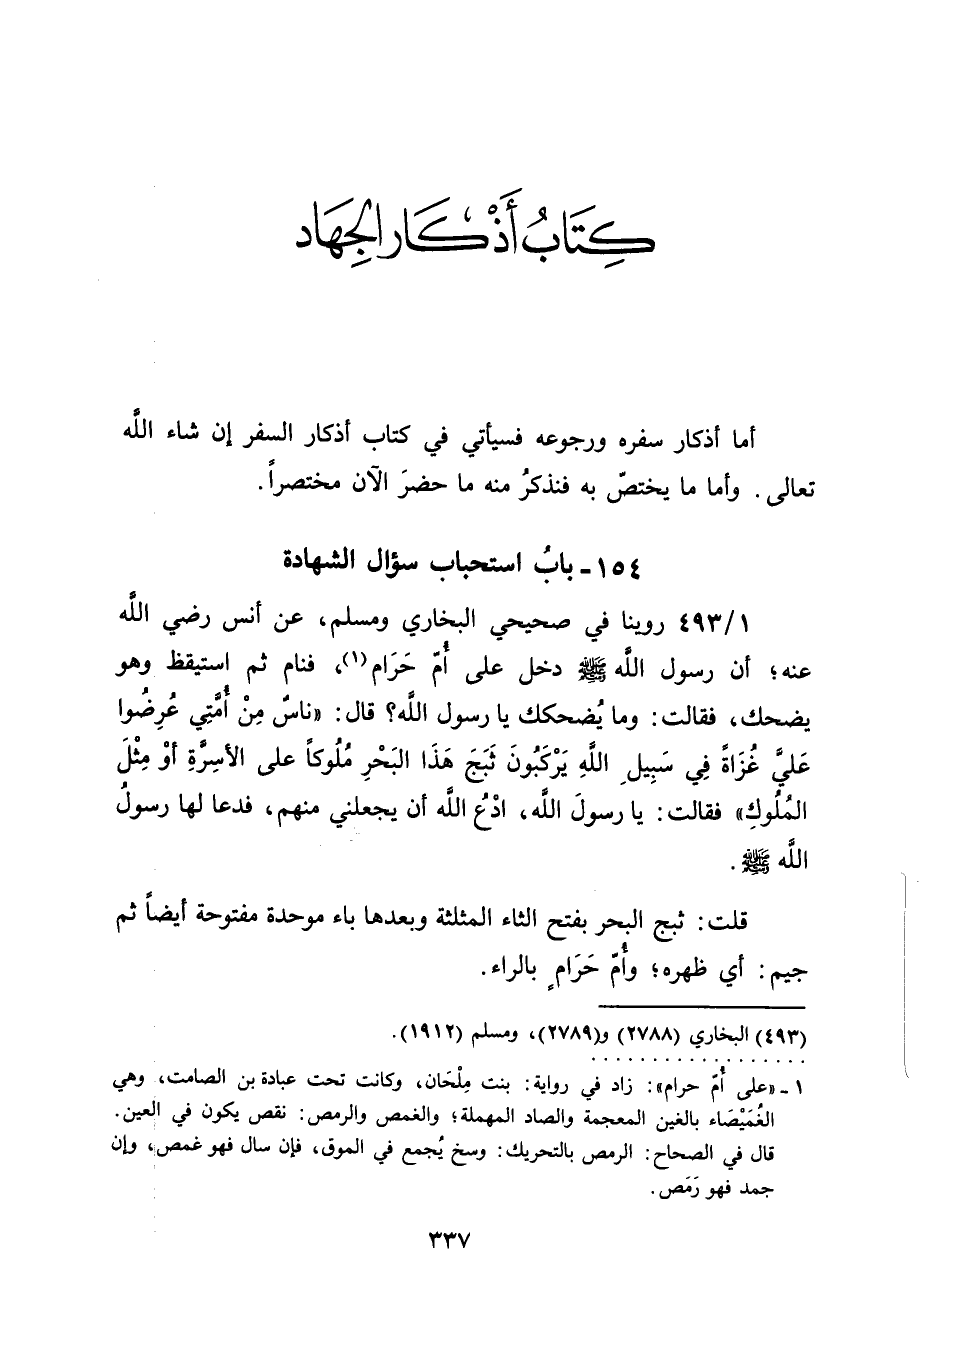 كِتَابُ أَذْكَارِ الجِهَاد
أما أذكار سفره ورجوعه فسيأتي في كتاب أذكار السفر إن شاء اللَّه
تعالى. وأما ما يختصّ به فنذكرُ منه ما حضرَ الآن مختصراً.
١٥٤ - بابُ استحباب سؤال الشهادة
٤٩٣/١ روينا في صحيحي البخاري ومسلم، عن أنس رضي اللَّه
عنه؛ أن رسول اللَّه ﷺ دخل على أُمّ حَرَام(١)، فنام ثم استيقظ وهو
يضحك، فقالت: وما يُضحكك يا رسول اللَّه؟ قال: «ناسٌ مِنْ أُمَّتِي عُرِضُوا
عَليَّ غُزَاةً فِي سَبِيلِ اللَّهِ يَرْكَبُونَ ثَبَجَ هَذَا البَحْرِ مُلُوكاً على الأسِرَّةِ أوْ مِثْلَ
المُلُوكِ» فقالت: يا رسولَ اللَّه، ادْعُ اللَّه أن يجعلني منهم، فدعا لها رسولُ
اللَّه ﷺ.
قلت: ثبج البحر بفتح الثاء المثلثة وبعدها باء موحدة مفتوحة أيضاً ثم
جيم: أي ظهره؛ وأُمّ حَرَامٍ بالراء.
(٤٩٣) البخاري (٢٧٨٨) و(٢٧٨٩)، ومسلم (١٩١٢).
١ - «على أُمّ حرام»: زاد في رواية: بنت مِلْحَان، وكانت تحت عبادة بن الصامت، وهي
الغُمَيْصَاء بالغين المعجمة والصاد المهملة؛ والغمص والرمص: نقص يكون في العين.
قال في الصحاح: الرمص بالتحريك: وسخ يُجمع في الموق، فإن سال فهو غمص، وإن
جمد فهو رَمَص.
٣٣٧